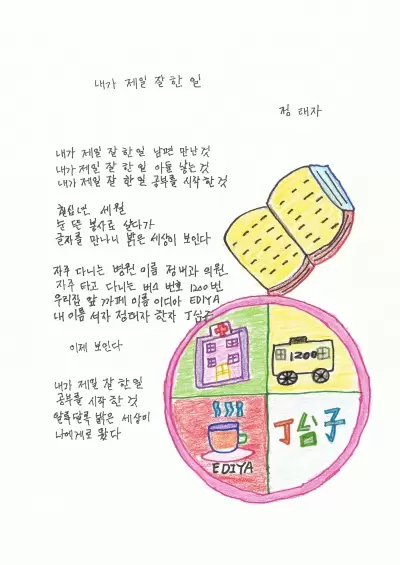 내가 제일 잘 한 일
정 태자
내가 제일 잘 한일 남편 만난 것
내가 제일 잘 한일 아들 낳는 것
내가 제일 잘 한일 공부를 시작 한 것
칠십년 세월
눈 뜬 봉사로 살다가
글자를 만나니 밝은 세상이 보인다
자주 다니는 병원 이름 정 내과 의원
자주 타고 다니는 버스 번호 1200번
우리집 앞 까페 이름 이디아 EDIYA
내 이름 석자 정태자 한자 丁台子
이제 보인다
내가 제일 잘 한 일
공부를 시작 한 것
알록달록 밝은 세상이
나에게로 왔다
1200
EDIYA
丁台子